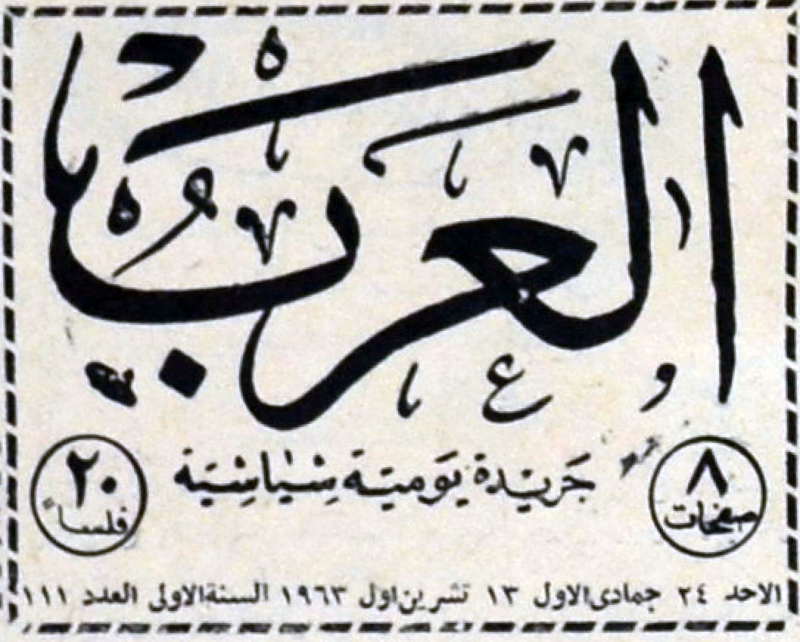 العرب
٨ صفحات
جريدة يومية سياسية
٢٠ فلسا
الاحد ٢٤ جمادى الاول ١٣ تشرين اول ١٩٦٣ السنة الاولى العدد ١١١